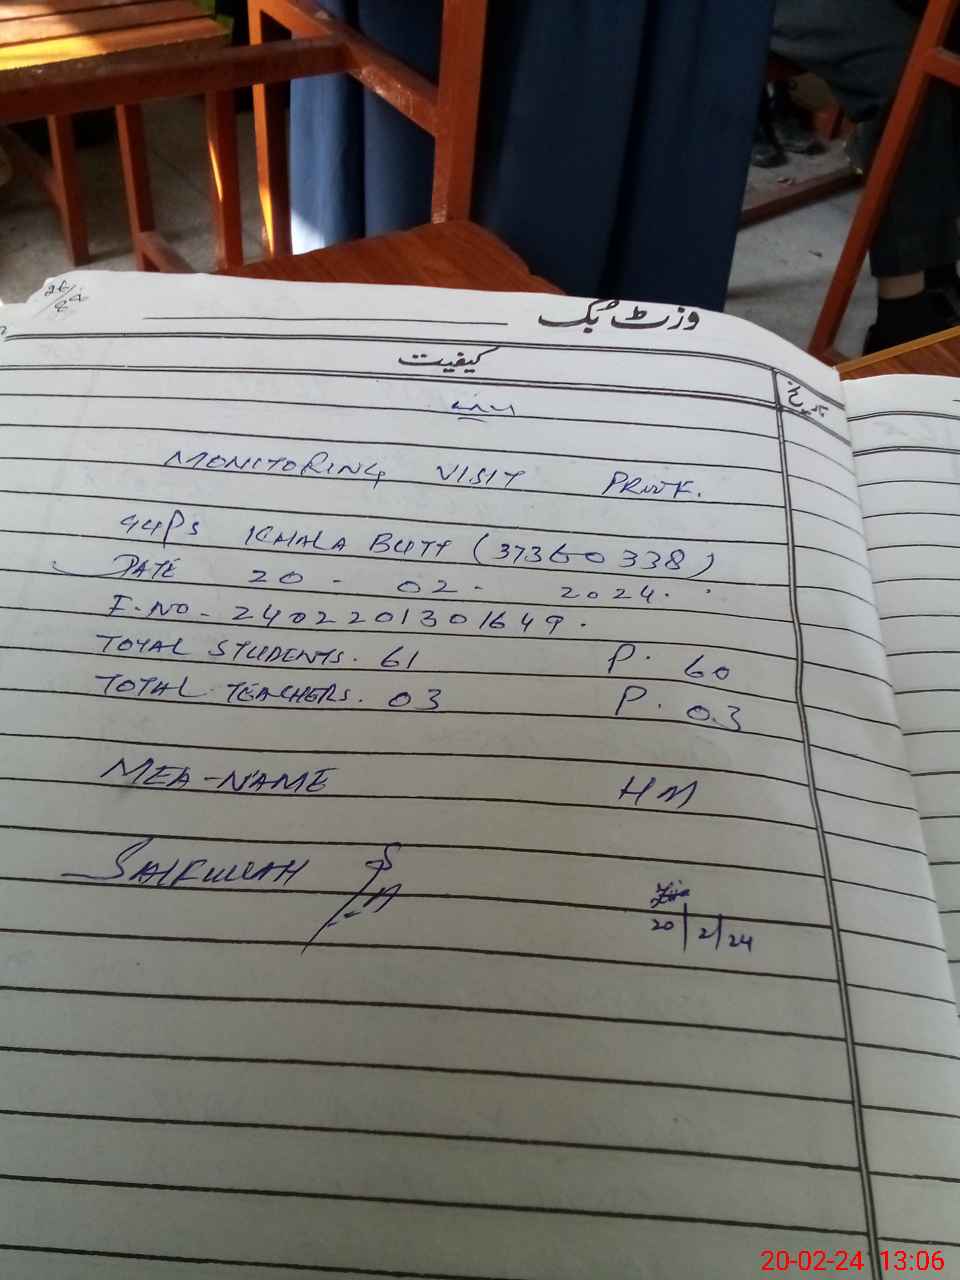 وزٹ بک
کیفیت
تاریخ
MONITORING VISIT PROOF.
GGPS KHALA BUTT (37360338)
DATE 20 - 02 - 2024.
F-NO - 2402201301649.
TOTAL STUDENTS. 61 P. 60
TOTAL TEACHERS. 03 P. 03
MEA-NAME HM
SAIFULLAH
20/2/24
20-02-24 13:06